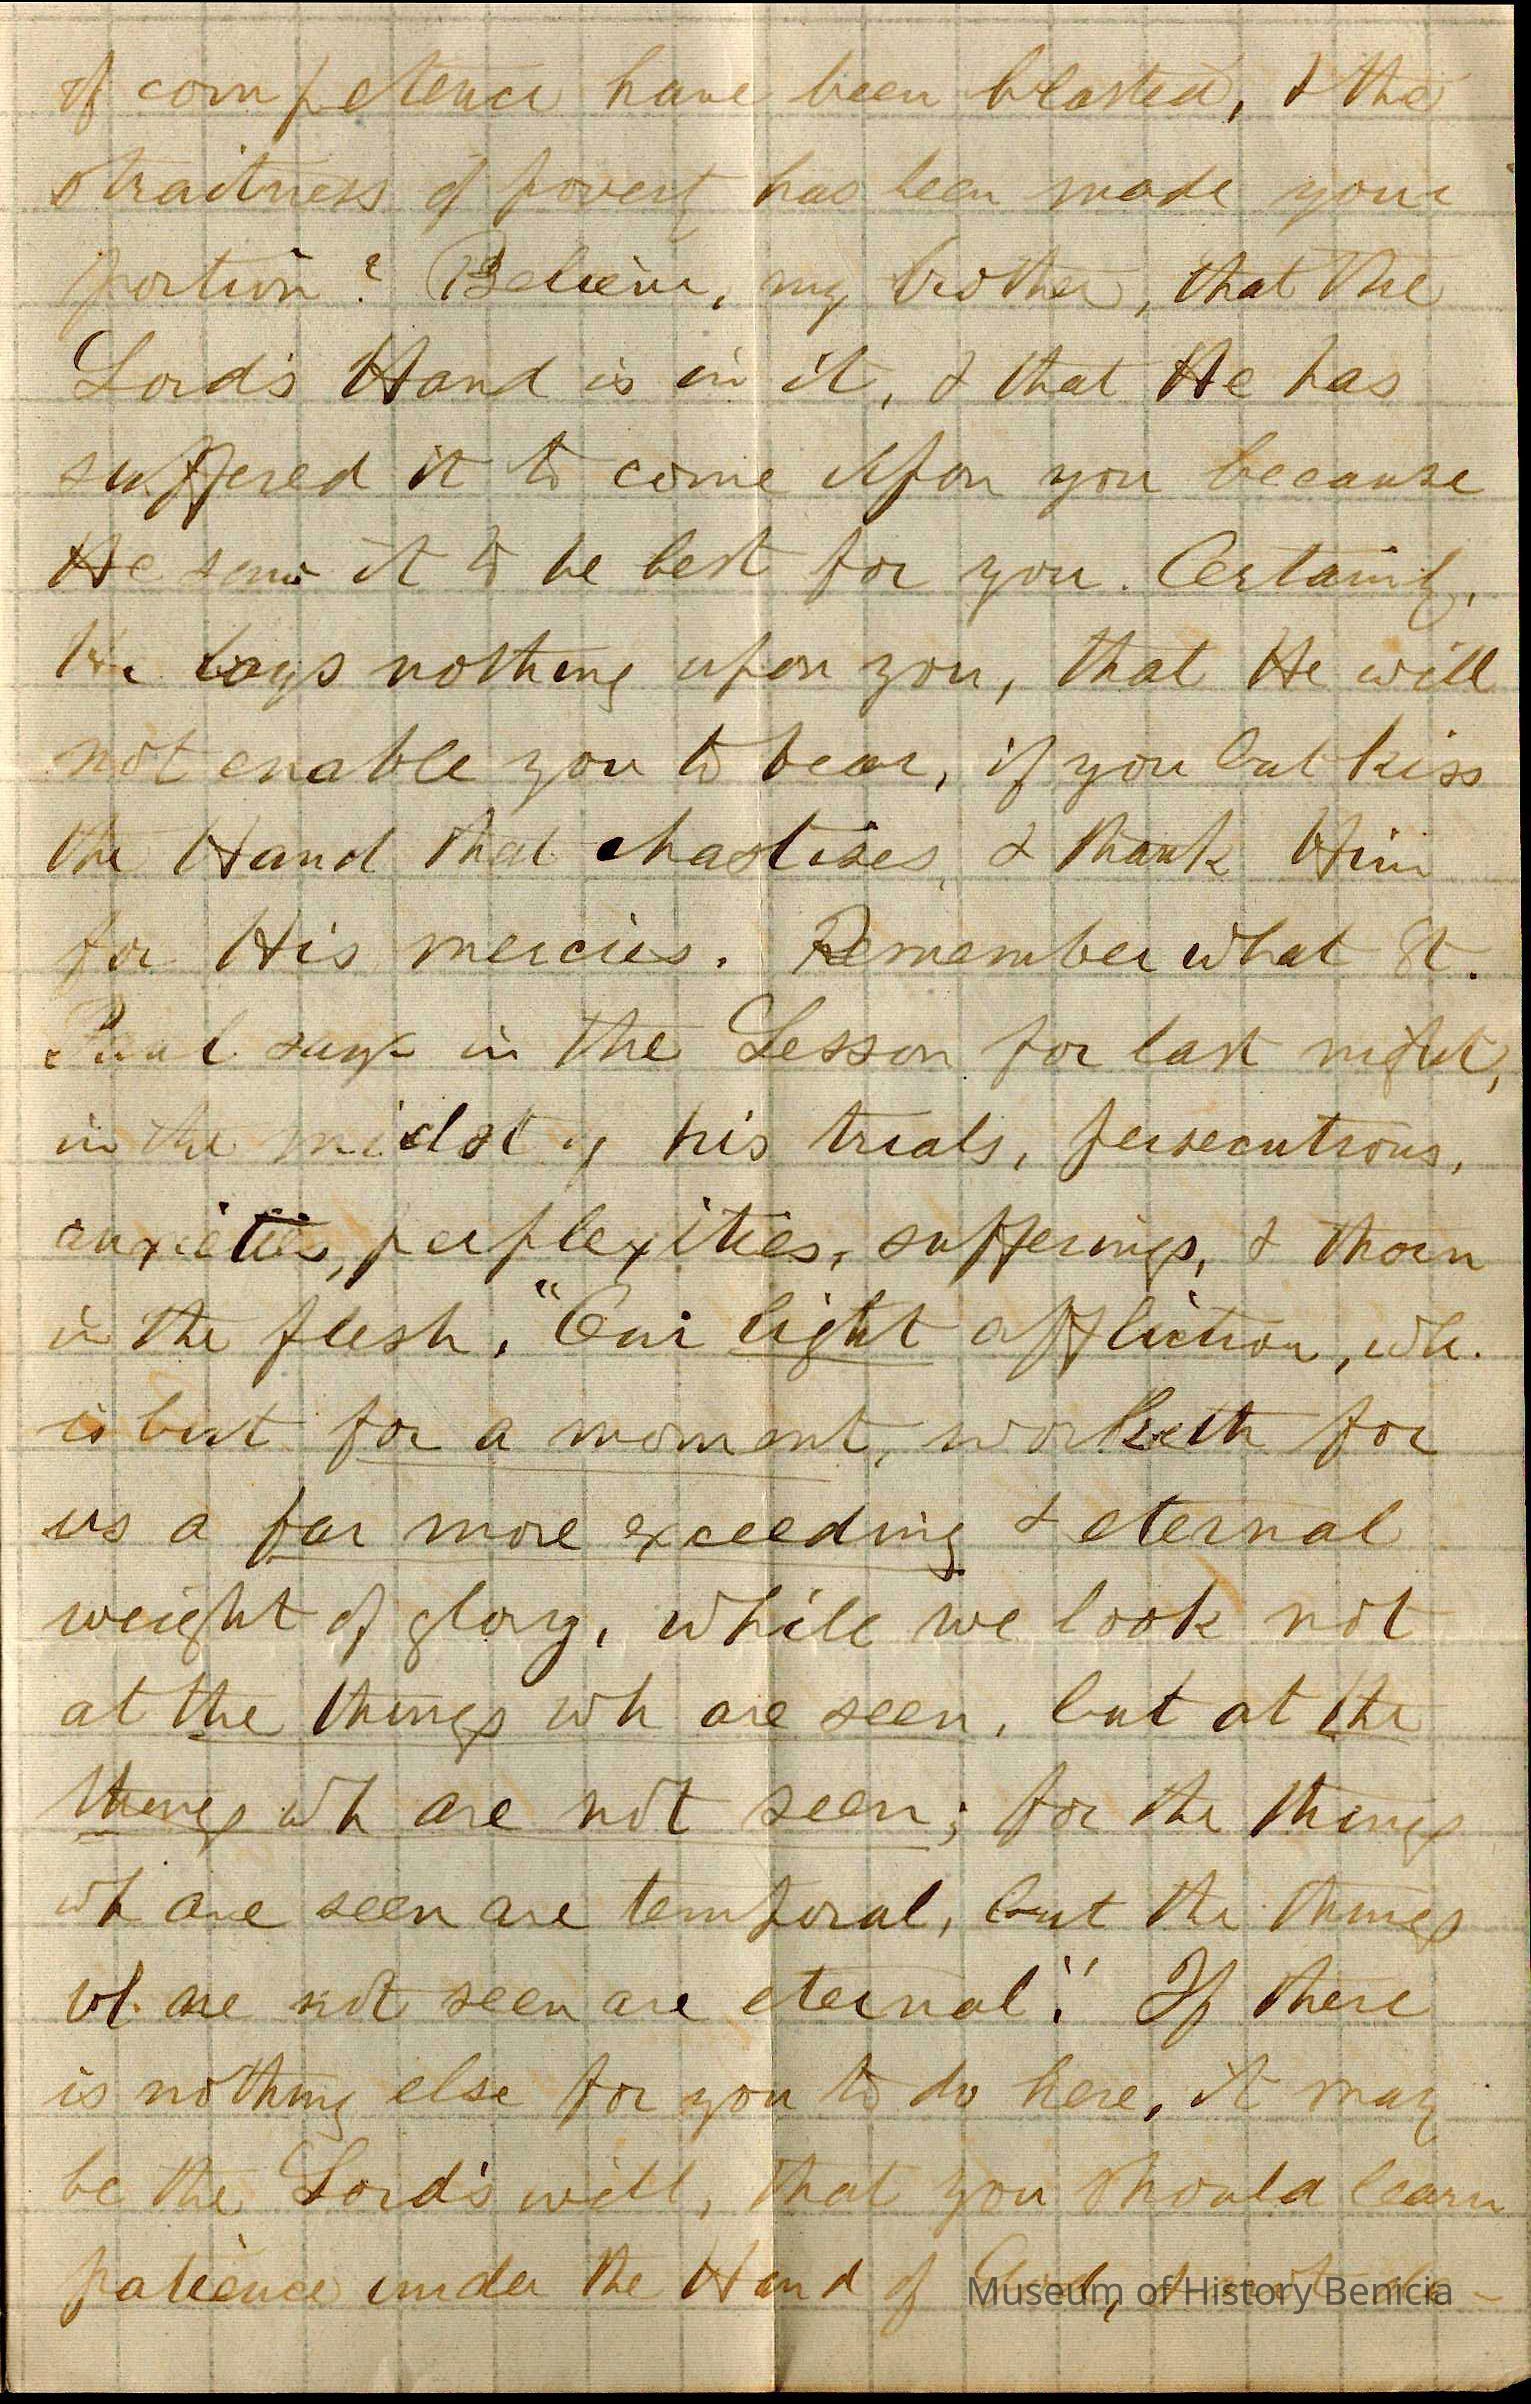 of competence have been blasted, & the
straitness of poverty has been made your
portion? Believe, my brother, that the
Lord's Hand is in it, & that He has
suffered it to come upon you because
He saw it to be best for you. Certainly,
He lays nothing upon you, that He will
not enable you to bear, if you but kiss
the Hand that chastises, & thank Him
for His mercies. Remember what St.
Paul says in the Lesson for last night,
in the midst of his trials, persecutions,
anxieties, perplexities, sufferings, & thorn
in the flesh, "Our light affliction, wh.
is but for a moment, worketh for
us a far more exceeding & eternal
weight of glory, while we look not
at the things wh are seen, but at the
things wh are not seen; for the things
wh are seen are temporal, but the things
wh. are not seen are eternal." If there
is nothing else for you to do here, it may
be the Lord's will, that you should learn
patience under the Hand of God,
Museum of History Benicia